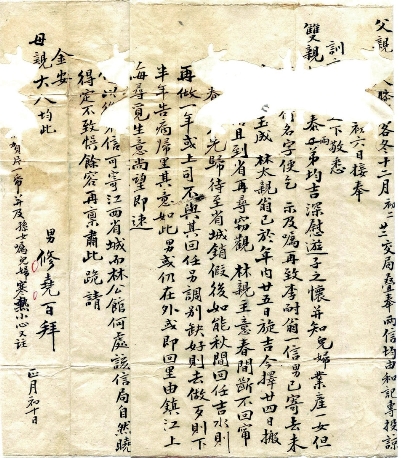 父親
客冬十二月初二、廿二交局壹奉兩信均由和記專投諒
訓
初六日接奉
雙親
下敬悉
泰母弟均吉深慰遊子之懷并知兒婦業產一女但
名字便乞示及為再致李耐翁一信男已寄去未
玉成林太親翁已於年內廿五日旋吉今擇廿四日搬
且到省再尋窃觀林親主意春間斷不回甯
春
先歸待至省城銷假後如能秋間回任吉水則
再做一年或上司不與其回任另調別缺好則去做歹則下
半年告病歸里其意如此男或仍在外或即回里由鎮江上
海尋覓生意尚望即速
信可寄江西省城而林公館何處該信局自然曉
得定不致悞餘容再稟肅此跪請
金安
母親大人均此
男修堯百拜
及孫女為兒婦寒熱小心又註
正月初十日